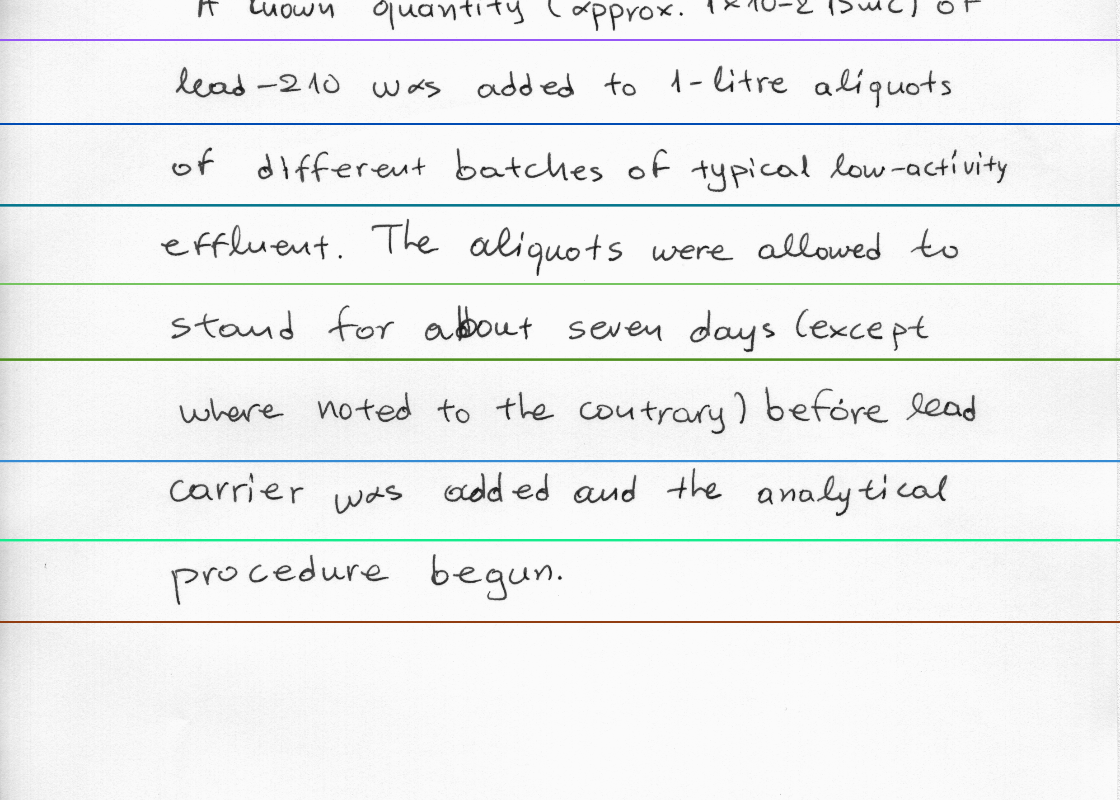 A known quantity (approx. 1x10-2 of
lead-210 was added to 1-litre aliquots
of different batches of typical low-activity
effluent. The aliquots were allowed to
stand for about seven days (except
where noted to the contrary) before lead
carrier was added and the analytical
procedure begun.